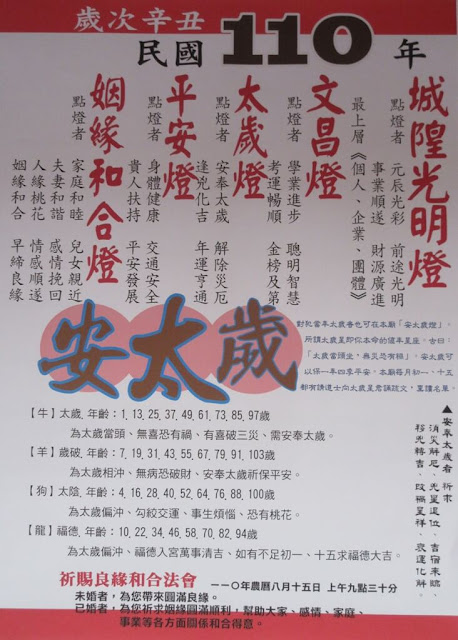 歲次辛丑
民國110年
城隍光明燈
點燈者 元辰光彩 前途光明
事業順遂 財源廣進
最上層《個人、企業、團體》
文昌燈
點燈者 學業進步 聰明智慧
考運暢順 金榜及第
太歲燈
點燈者 安奉太歲 解除災厄
逢兇化吉 年運亨通
平安燈
點燈者 身體健康 交通安全
貴人扶持 平安發展
姻緣和合燈
點燈者 家庭和睦 兒女親近
夫妻和諧 感情挽回
人緣桃花 情感順遂
姻緣和合 早締良緣
安太歲
對於當年太歲者也可在本廟「安太歲燈」,
所謂太歲星即你本命的值年星座,古曰:
「太歲當頭坐,無災恐有禍」,安太歲可
以保一年四季平安,本廟每月初一、十五
都有請道士向太歲星君誦疏文,呈讀名單。
▲安奉太歲者 祈求
消災解厄、兇星退位、吉宿來臨、
移兇轉吉、改禍呈祥、衰運化解。
【牛】太歲, 年齡:1, 13, 25, 37, 49, 61, 73, 85, 97歲
為太歲當頭、無喜恐有禍、有喜破三災、需安奉太歲。
【羊】歲破, 年齡:7, 19, 31, 43, 55, 67, 79, 91, 103歲
為太歲相沖、無病恐破財、安奉太歲祈保平安。
【狗】太陰, 年齡:4, 16, 28, 40, 52, 64, 76, 88, 100歲
為太歲偏沖、勾絞交運、事生煩惱、恐有桃花。
【龍】福德, 年齡:10, 22, 34, 46, 58, 70, 82, 94歲
為太歲偏沖、福德入宮萬事清吉、如有不足初一、十五求福德大吉。
祈賜良緣和合法會 一一○年農曆八月十五日 上午九點三十分
未婚者,為您帶來圓滿良緣。
已婚者,為您祈求姻緣圓滿順利,幫助大家、感情、家庭、
事業等各方面關係和合得意。